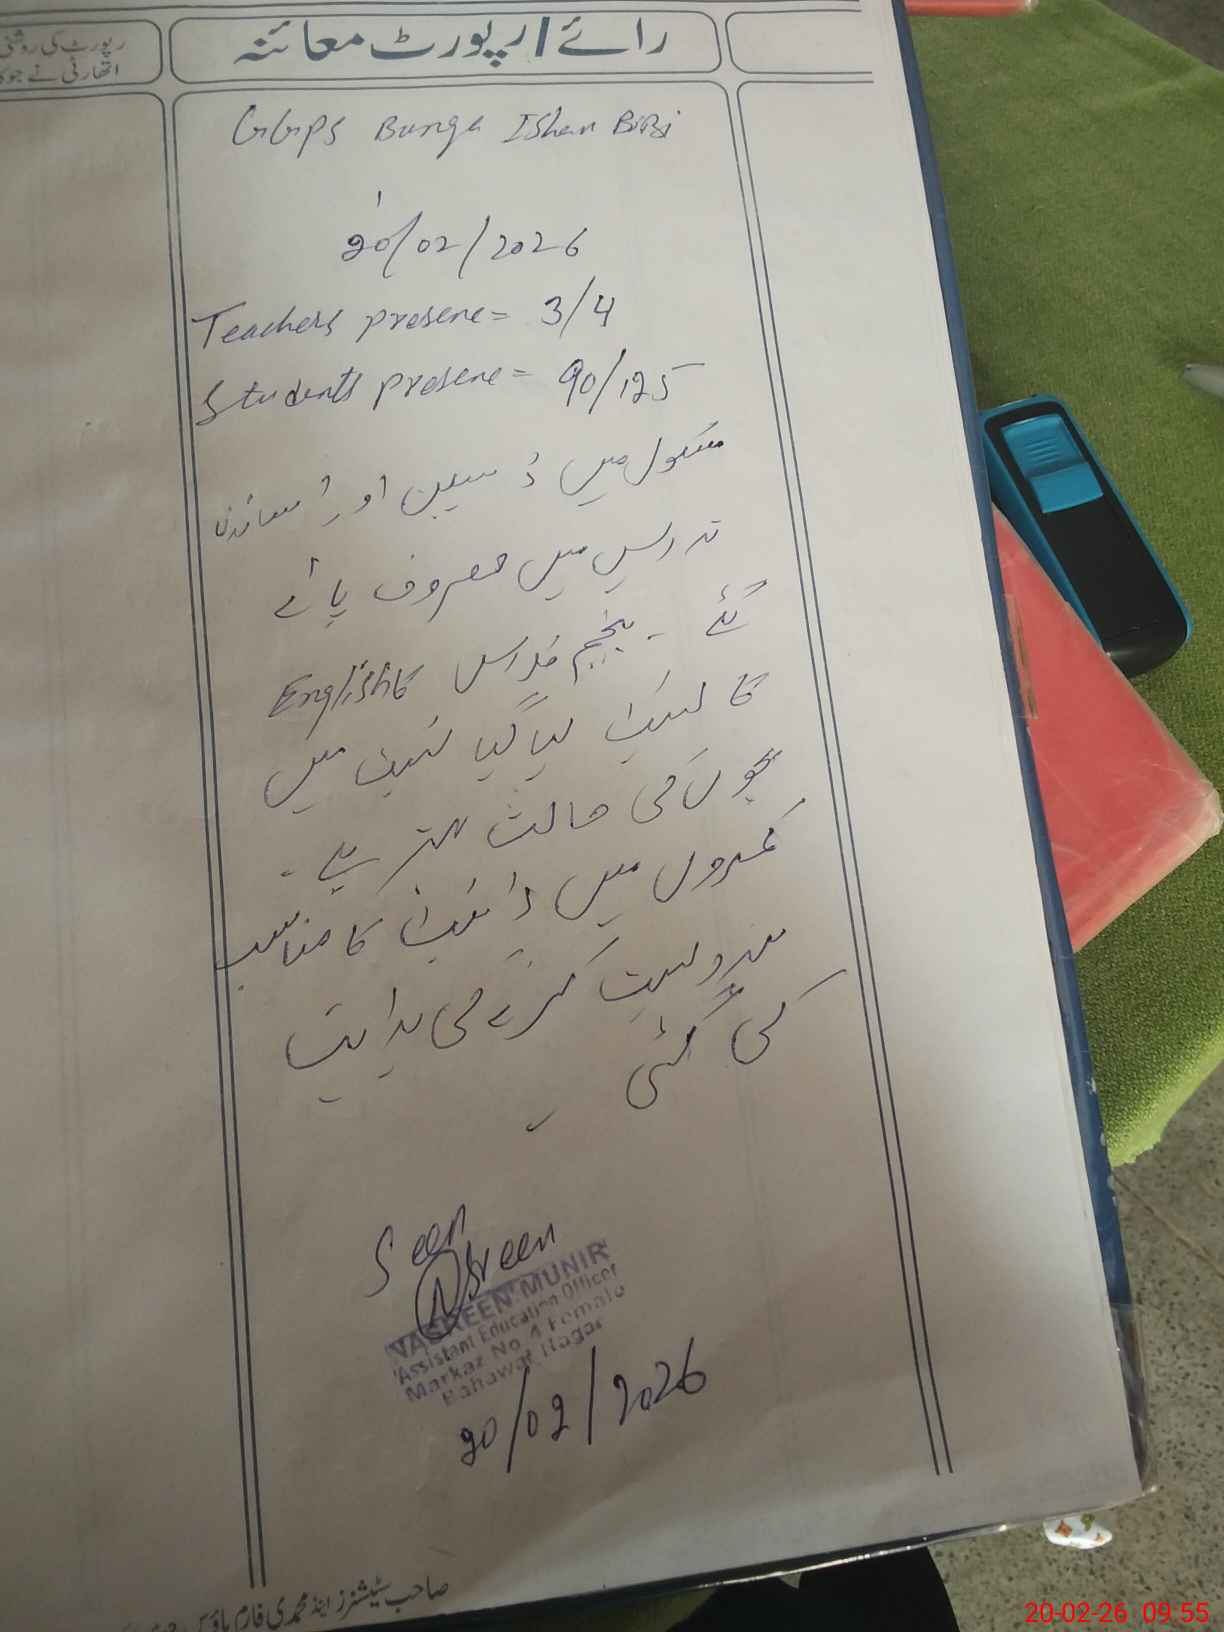 رائے / رپورٹ معائنہ
رپورٹ کی روشنی
اتھارٹی نے جو
GGPS Bunga Ishan BiBi
20/02/2026
Teachers present = 3/4
Students present = 90/125
سکول میں ڈسپلن اور اساتذہ
تدریس میں مصروف پائے
گئے ۔ پنجم کلاس کا English
کا ٹیسٹ لیا گیا ٹیسٹ میں
بچوں کی حالت بہتر ہے ۔
کمروں میں لائیٹ کا مناسب
بندوبست کرنے کی ہدایت
کی گئی ۔
Seen
Nasreen
NASREEN MUNIR
Assistant Education Officer
Markaz No. 4 Female
Bahawal Nagar
20/02/2026
صاحب سٹیشنرز اینڈ محمدی فارم ہاؤس
20-02-26 09:55